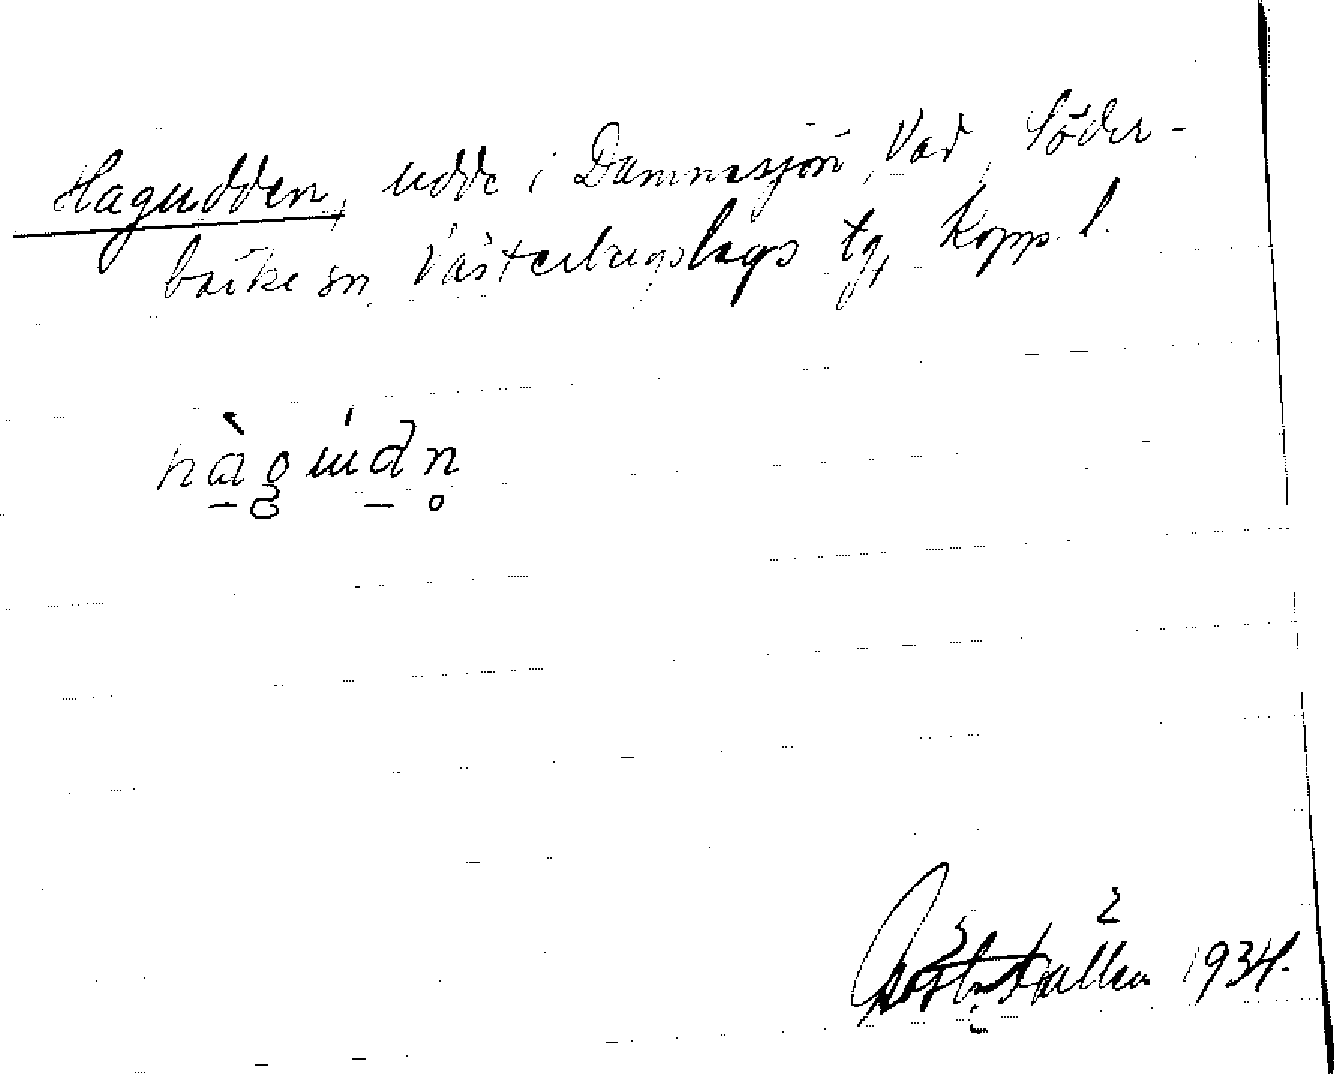 Hagudden, udde i Dammsjön, Vad, Söder-
barke sn, Västerbergslags tg, Kopp. l.
hàgɯ́dn̥
1934.